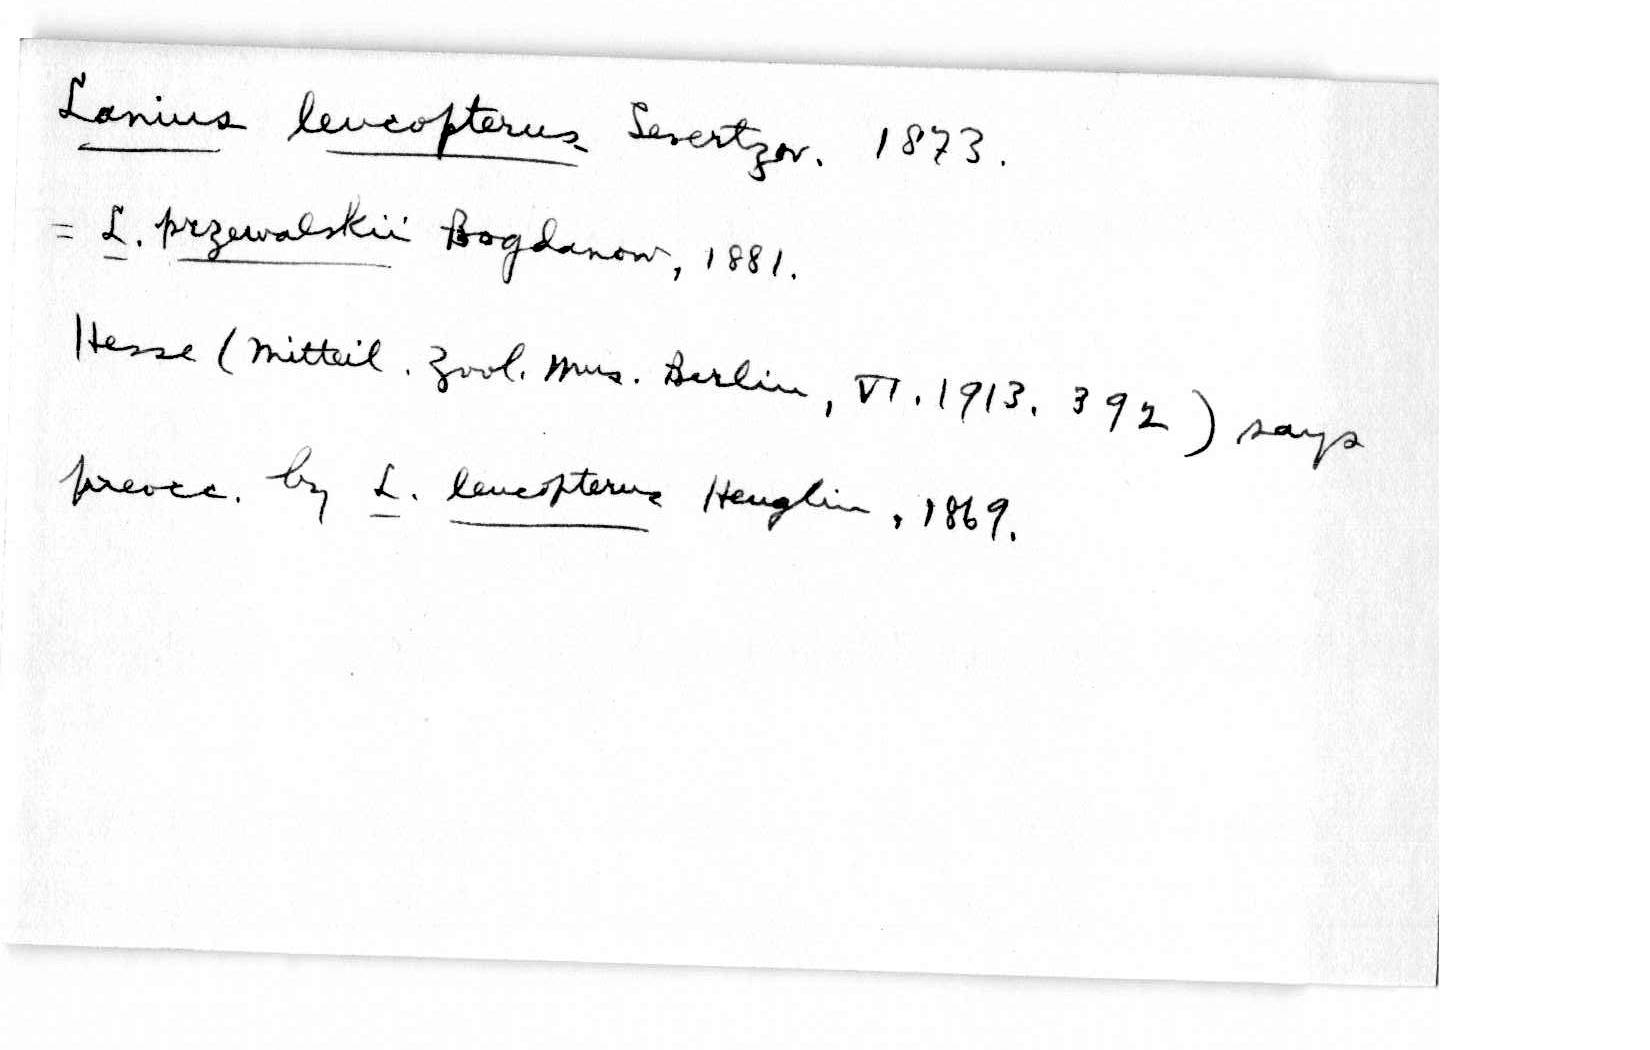 Lanius leucopterus Severtzov. 1873.
= L. przewalskii Bogdanow, 1881.
Hesse (Mitteil. Zool. Mus. Berlin, VI. 1913. 392) says
preocc. by L. leucopterus Heuglin, 1869.